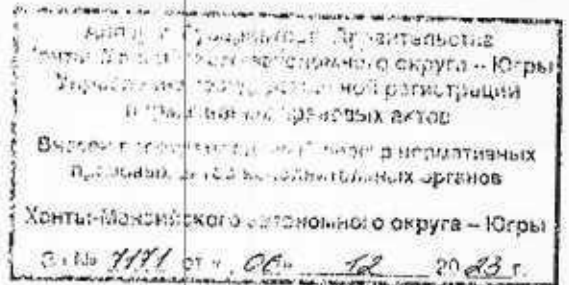 Аппарат Губернатора, Правительства
Ханты-Мансийского автономного округа – Югры
Управление государственной регистрации
нормативных правовых актов
Внесен в государственный реестр нормативных
правовых актов исполнительных органов
Ханты-Мансийского автономного округа – Югры
За № 7171 от « 06 » 12 2023 г.